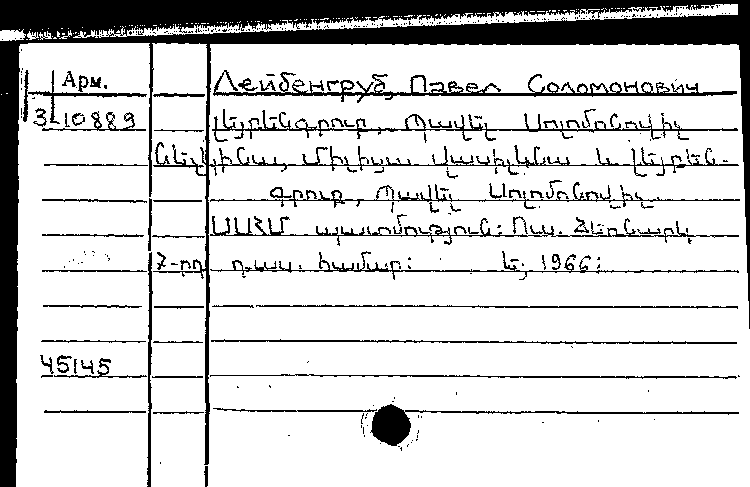 Арм. Лейбенгруб, Павел Соломонович
3-10889 Լեյբենգրուբ, Պավել Սոլոմոնովիչ
Նեչկինա, Միլիցա Վասիլևնա և Լեյբեն-
գրուբ, Պավել Սոլոմոնովիչ
ՍՍՀՄ պատմություն: Ուս. ձեռնարկ
7-րդ դաս. համար: Ե, 1966:
45145